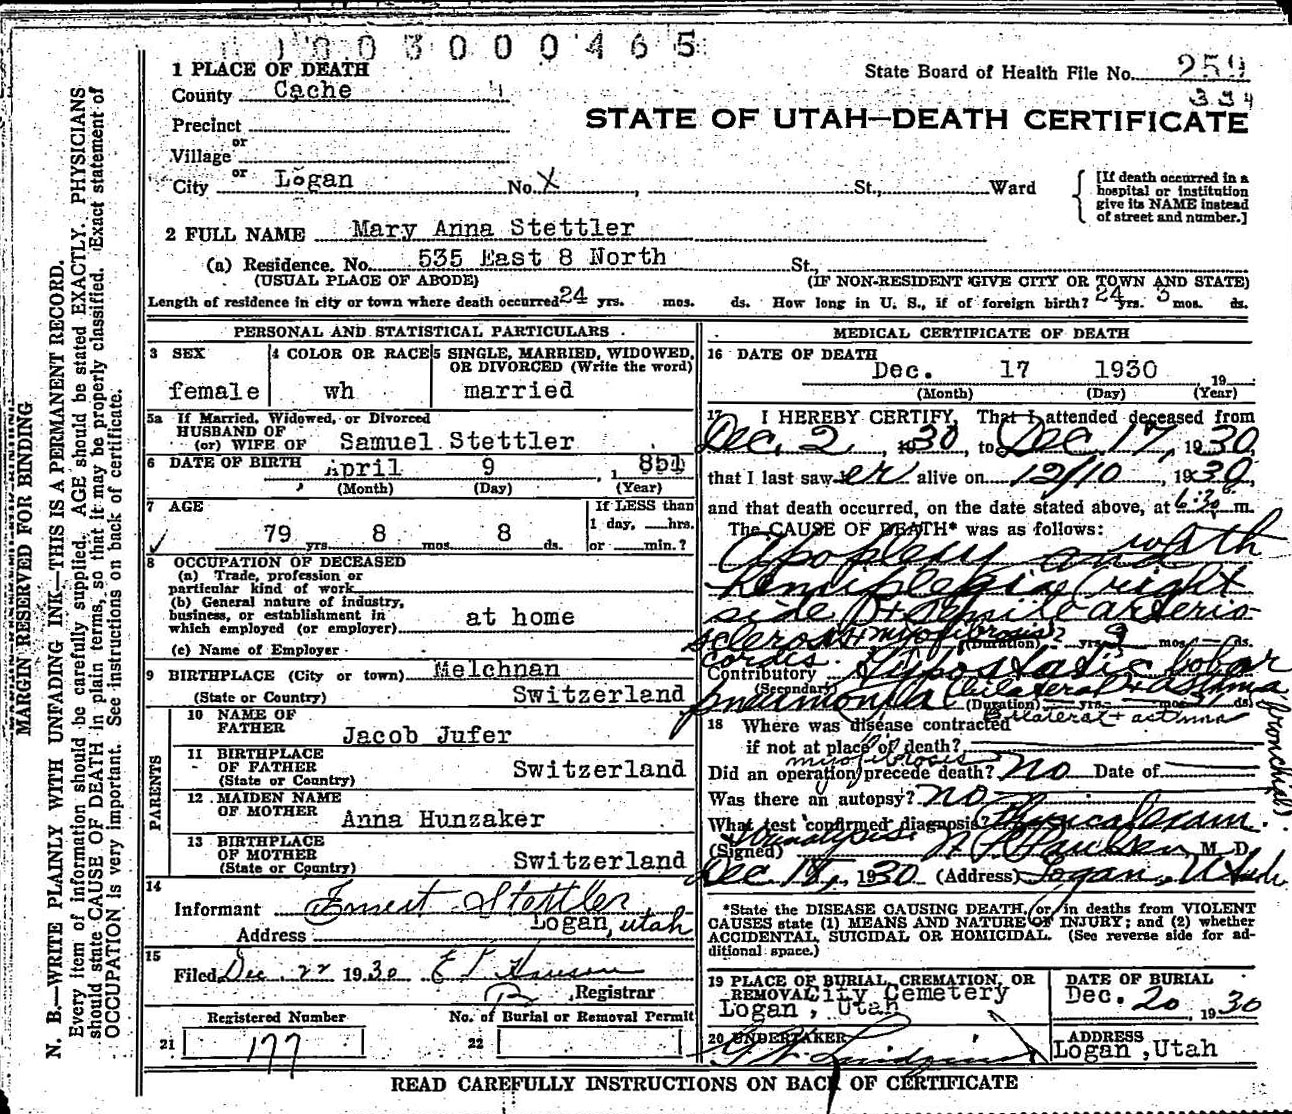 0003000465
1 PLACE OF DEATH
State Board of Health File No. 259
334
County Cache
STATE OF UTAH—DEATH CERTIFICATE
Precinct
or
Village
or
City Logan No. X , St., Ward
[If death occurred in a
hospital or institution
give its NAME instead
of street and number.]
2 FULL NAME Mary Anna Stettler
(a) Residence. No. 535 East 8 North St.,
(USUAL PLACE OF ABODE) (IF NON-RESIDENT GIVE CITY OR TOWN AND STATE)
Length of residence in city or town where death occurred 24 yrs. mos. ds. How long in U. S., if of foreign birth? 24 yrs. 3 mos. ds.
PERSONAL AND STATISTICAL PARTICULARS
3 SEX
female
4 COLOR OR RACE
wh
5 SINGLE, MARRIED, WIDOWED,
OR DIVORCED (Write the word)
married
5a If Married, Widowed, or Divorced
HUSBAND OF
(or) WIFE OF Samuel Stettler
6 DATE OF BIRTH April 9 , 1851
(Month) (Day) (Year)
7 AGE
79 yrs. 8 mos. 8 ds.
If LESS than
1 day, hrs.
or min.?
8 OCCUPATION OF DECEASED
(a) Trade, profession or
particular kind of work
(b) General nature of industry,
business, or establishment in
which employed (or employer) at home
(c) Name of Employer
9 BIRTHPLACE (City or town) Melchnan
(State or Country) Switzerland
PARENTS
10 NAME OF
FATHER Jacob Jufer
11 BIRTHPLACE
OF FATHER
(State or Country) Switzerland
12 MAIDEN NAME
OF MOTHER Anna Hunzaker
13 BIRTHPLACE
OF MOTHER
(State or Country) Switzerland
14
Informant Ernest Stettler
Address Logan, Utah
15
Filed Dec. 22 1930
Registrar
Registered Number
21 177
No. of Burial or Removal Permit
22
MEDICAL CERTIFICATE OF DEATH
16 DATE OF DEATH
Dec. 17 1930 19
(Month) (Day) (Year)
17 I HEREBY CERTIFY, That I attended deceased from
Dec. 2, 1930, to Dec. 17, 1930,
that I last saw her alive on 12/10, 1930,
and that death occurred, on the date stated above, at m.
The CAUSE OF DEATH* was as follows:
Apoplexy and with
hemiplegia (right
side) + senile arterio
sclerosis + myofibrosis
cordis. (Duration) yrs. mos. ds.
Contributory Hypostatic lobar
(Secondary)
pneumonia (bilateral) + asthma
(bronchial).
(Duration) yrs. mos. ds.
18 Where was disease contracted bilateral + asthma
if not at place of death?
myofibrosis
Did an operation precede death? no Date of
Was there an autopsy? no
What test confirmed diagnosis? Physical exam.
Urinalysis.
(Signed) Paulsen, M. D.
Dec 18, 1930 (Address) Logan, Utah
*State the DISEASE CAUSING DEATH, or, in deaths from VIOLENT
CAUSES state (1) MEANS AND NATURE OF INJURY; and (2) whether
ACCIDENTAL, SUICIDAL OR HOMICIDAL. (See reverse side for ad-
ditional space.)
19 PLACE OF BURIAL, CREMATION, OR
REMOVAL City Cemetery
Logan, Utah
DATE OF BURIAL
Dec. 20, 1930
20 UNDERTAKER
ADDRESS
Logan, Utah
READ CAREFULLY INSTRUCTIONS ON BACK OF CERTIFICATE
MARGIN RESERVED FOR BINDING
N. B.—WRITE PLAINLY WITH UNFADING INK—THIS IS A PERMANENT RECORD.
Every item of information should be carefully supplied. AGE should be stated EXACTLY. PHYSICIANS
should state CAUSE OF DEATH in plain terms, so that it may be properly classified. Exact statement of
OCCUPATION is very important. See instructions on back of certificate.